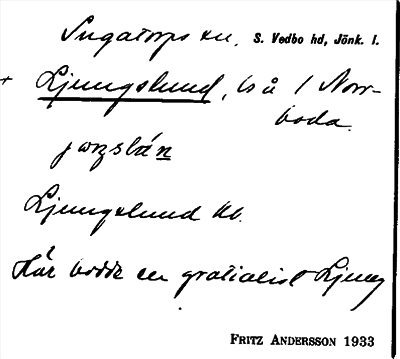 Ingatorps sn. S. Vedbo hd, Jönk. l.
+ Ljungslund, bs å 1 Norr-
boda.
Ljungslund kb.
Här bodde en gratialist Ljung
FRITZ ANDERSSON 1933